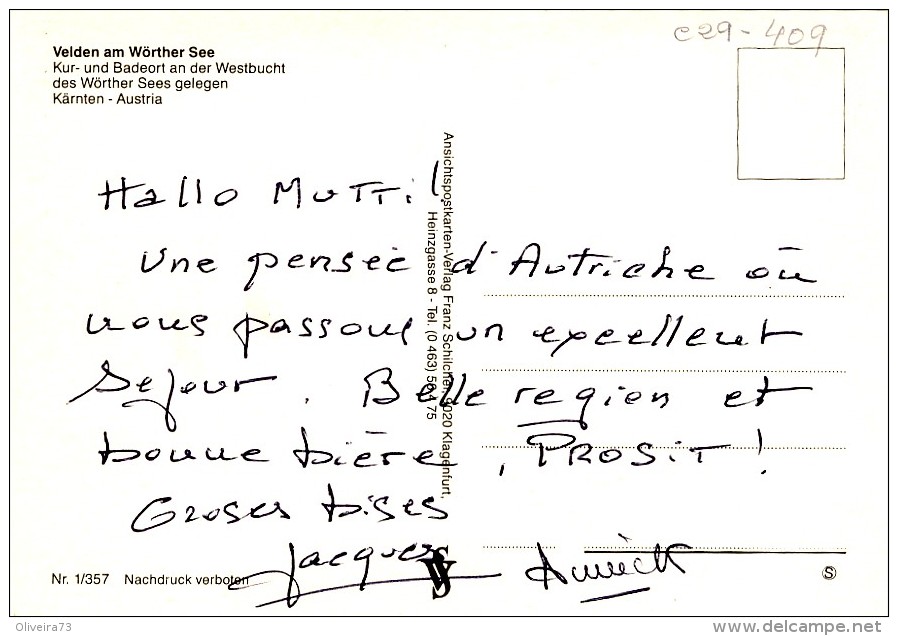 c29-409
Velden am Wörther See
Kur- und Badeort an der Westbucht
des Wörther Sees gelegen
Kärnten - Austria
Hallo Mutti!
Une pensée d'Autriche où
nous passons un excellent
Sejour. Belle region et
bonne bière, PROSiT!
Groses bises
Jacques Annick
Ansichtspostkarten-Verlag Franz Schilcher, 9020 Klagenfurt,
Heinzgasse 8 - Tel. (0 463)
Nr. 1/357 Nachdruck verboten
S
Oliveira73
www.delcampe.net